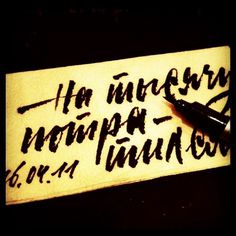 —На тысячи
потра-
тился
26.04.11